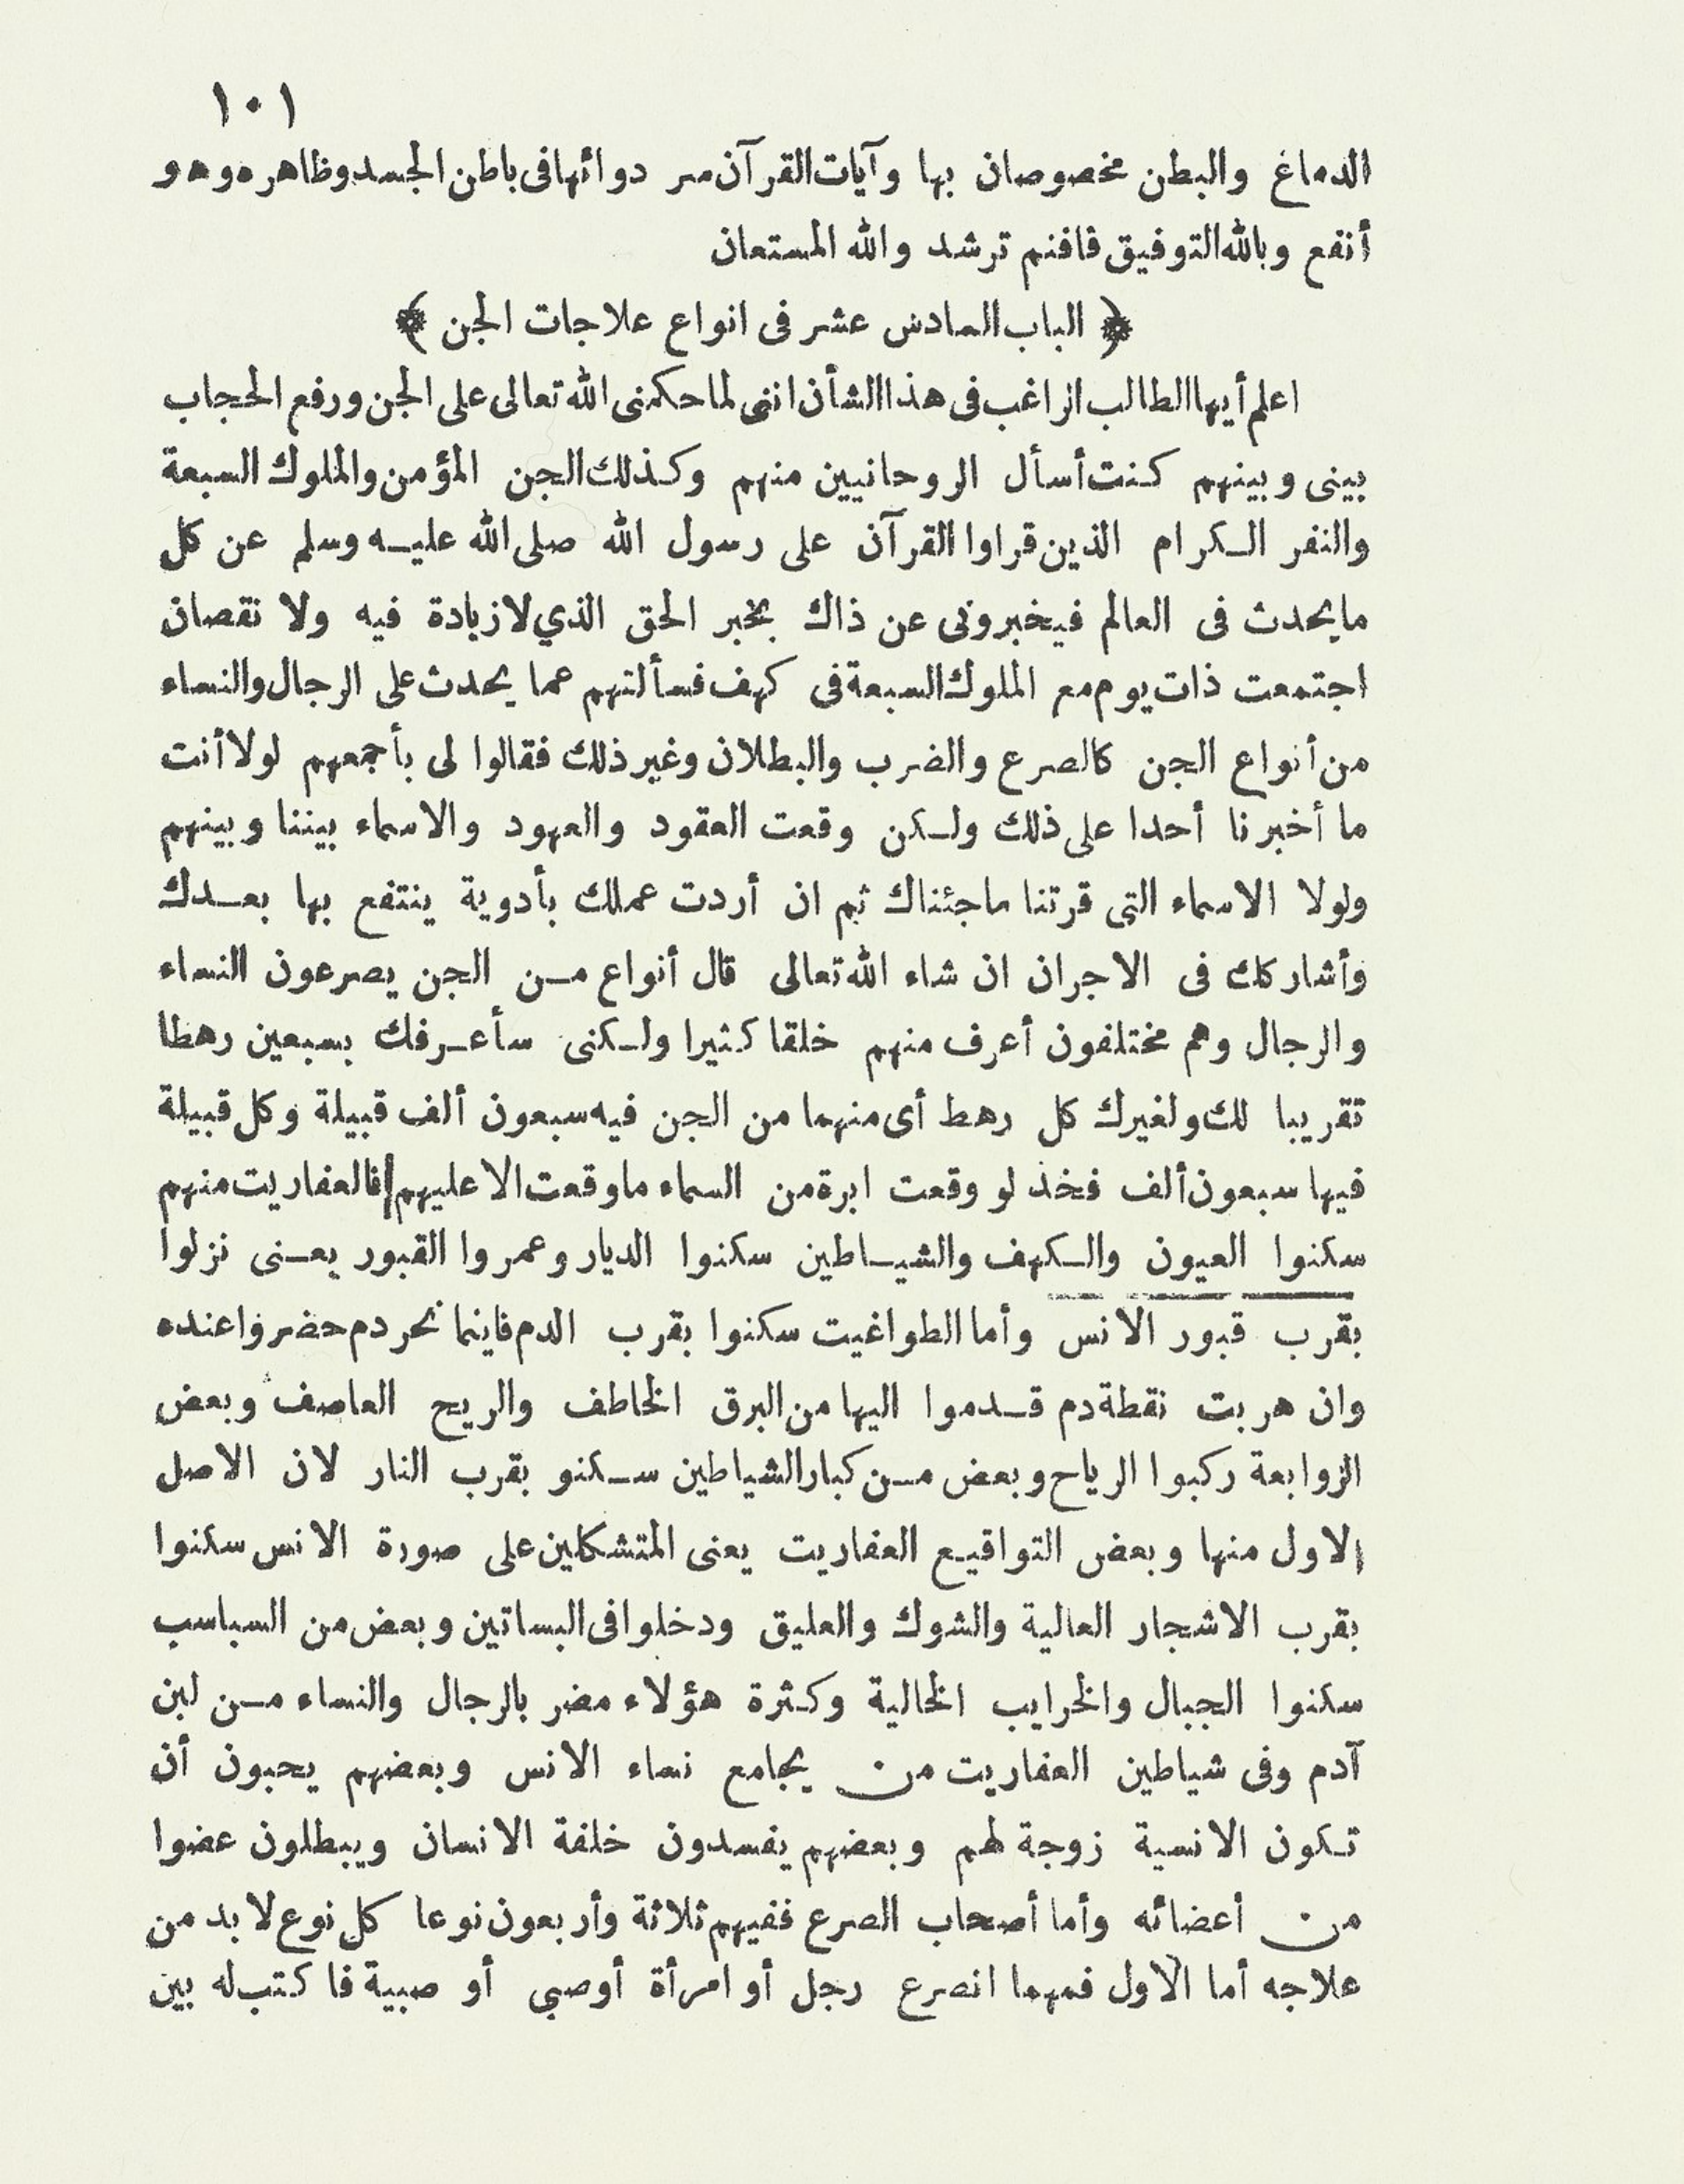 ١٠١
الدماغ والبطن مخصوصان بها وآيات القرآن سر دوائها فى باطن الجسد وظاهره وهو
أنفع وبالله التوفيق فافنم ترشد والله المستعان
﴿ الباب السادس عشر فى انواع علاجات الجن ﴾
اعلم أيها الطالب الراغب فى هذا الشأن اننى لما حكمنى الله تعالى على الجن ورفع الحجاب
بينى وبينهم كنت أسأل الروحانيين منهم وكذلك الجن المؤمن والملوك السبعة
والنفر الكرام الذين قراوا القرآن على رسول الله صلى الله عليه وسلم عن كل
ما يحدث فى العالم فيخبرونى عن ذاك بخبر الحق الذي لا زيادة فيه ولا نقصان
اجتمعت ذات يوم مع الملوك السبعة فى كهف فسألتهم عما يحدث على الرجال والنساء
من أنواع الجن كالصرع والضرب والبطلان وغير ذلك فقالوا لى بأجمعهم لولا أنت
ما أخبرنا أحدا على ذلك ولكن وقعت العقود والعهود والاسماء بيننا وبينهم
ولولا الاسماء التى قرتنا ماجئناك ثم ان أردت عملك بأدوية ينتفع بها بعدك
وأشاركك فى الاجران ان شاء الله تعالى قال أنواع من الجن يصرعون النساء
والرجال وهم مختلفون أعرف منهم خلقا كثيرا ولكنى سأعرفك بسبعين رهطا
تقريبا لك ولغيرك كل رهط أى منهما من الجن فيه سبعون ألف قبيلة وكل قبيلة
فيها سبعون ألف فخذ لو وقعت ابرة من السماء ما وقعت الا عليهم فالعفاريت منهم
سكنوا العيون والكهف والشياطين سكنوا الديار وعمروا القبور يعنى نزلوا
بقرب قبور الانس وأما الطواغيت سكنوا بقرب الدم فاينما نحر دم حضروا عنده
وان هربت نقطة دم قدموا اليها من البرق الخاطف والريح العاصف وبعض
الزوابعة ركبوا الرياح وبعض من كبار الشياطين سكنو بقرب النار لان الاصل
الاول منها وبعض التواقيع العفاريت يعنى المتشكلين على صورة الانس سكنوا
بقرب الاشجار العالية والشوك والعليق ودخلوا فى البساتين وبعض من السباسب
سكنوا الجبال والخرايب الخالية وكثرة هؤلاء مضر بالرجال والنساء من لبن
آدم وفى شياطين العفاريت من يجامع نساء الانس وبعضهم يحبون أن
تكون الانسية زوجة لهم وبعضهم يفسدون خلفة الانسان ويبطلون عضوا
من أعضائه وأما أصحاب الصرع ففيهم ثلاثة وأربعون نوعا كل نوع لا بد من
علاجه أما الاول فمهما انصرع رجل أو امرأة أوصبي أو صبية فا كتب له بين